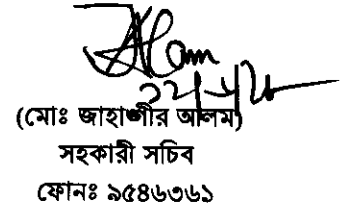 Alam
(মোঃ জাহাঙ্গীর আলম)
সহকারী সচিব
ফোনঃ ৯৫৪৬৩৬১